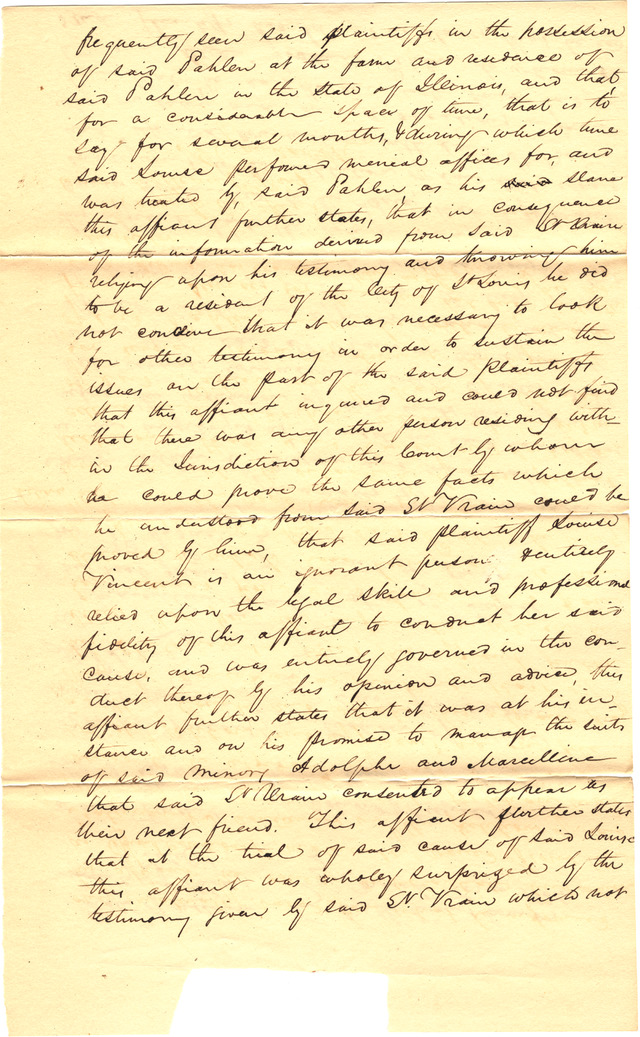 frequently seen said plaintiffs in the possession
of said Pahlen at the farm and residence of
said Pahlen in the state of Illinois, and that
for a considerable space of time, that is to
say for several months, & during which time
said Louise performed menial offices for, and
was treated by, said Pahlen, as his said slave
this affiant further states, that in consequence
of the information derived from said St Vrain
relying upon his testimony and knowing him
to be a resident of the City of St Louis he did
not conceive that it was necessary to look
for other testimony in order to sustain the
issues on the part of the said plaintiffs
that this affiant inquired and could not find
that there was any other person residing with-
in the Jurisdiction of this Court by whom
he could prove the same facts which
he understood from said St Vrain could be
proved by him, that said plaintiff Louise
Vincent is an ignorant person & entirely
relied upon the legal skill and professional
fidelity of this affiant to conduct her said
cause, and was entirely governed in the con-
duct thereof by his opinion and advice, this
affiant further states that it was at his in-
stance and on his promise to manage the suits
of said minors Adolphe and Marcelline
that said St Vrain consented to appear as
their next friend. This affiant further states
that at the trial of said cause of said Louise
this affiant was wholey surprized by the
testimony given by said St Vrain which not